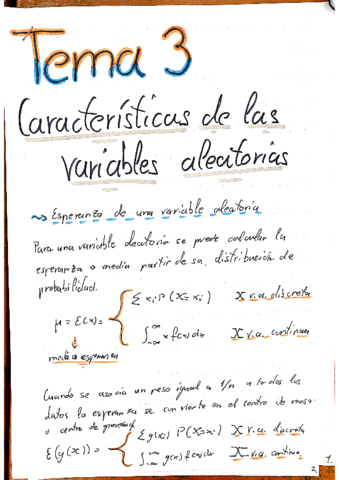 Tema 3
Características de las
variables aleatorias
~> Esperanza de una variable aleatoria
Para una variable aleatoria se puede calcular la
esperanza o media partir de su distribución de
probabilidad.
Σ xᵢ P(X=xᵢ) X v.a. discreta
μ = E(X) = {
∫_{-∞}^{∞} x f(x) dx X v.a. continua
media esperanza
Cuando se asocia un peso igual a 1/n a todos los
datos la esperanza se convierte en el centro de masa
o centro de gravedad
Σ g(xᵢ) P(X=xᵢ) X v.a. discreta
E(g(x)) = {
∫_{-∞}^{∞} g(x) f(x) dx X v.a. continua
1.